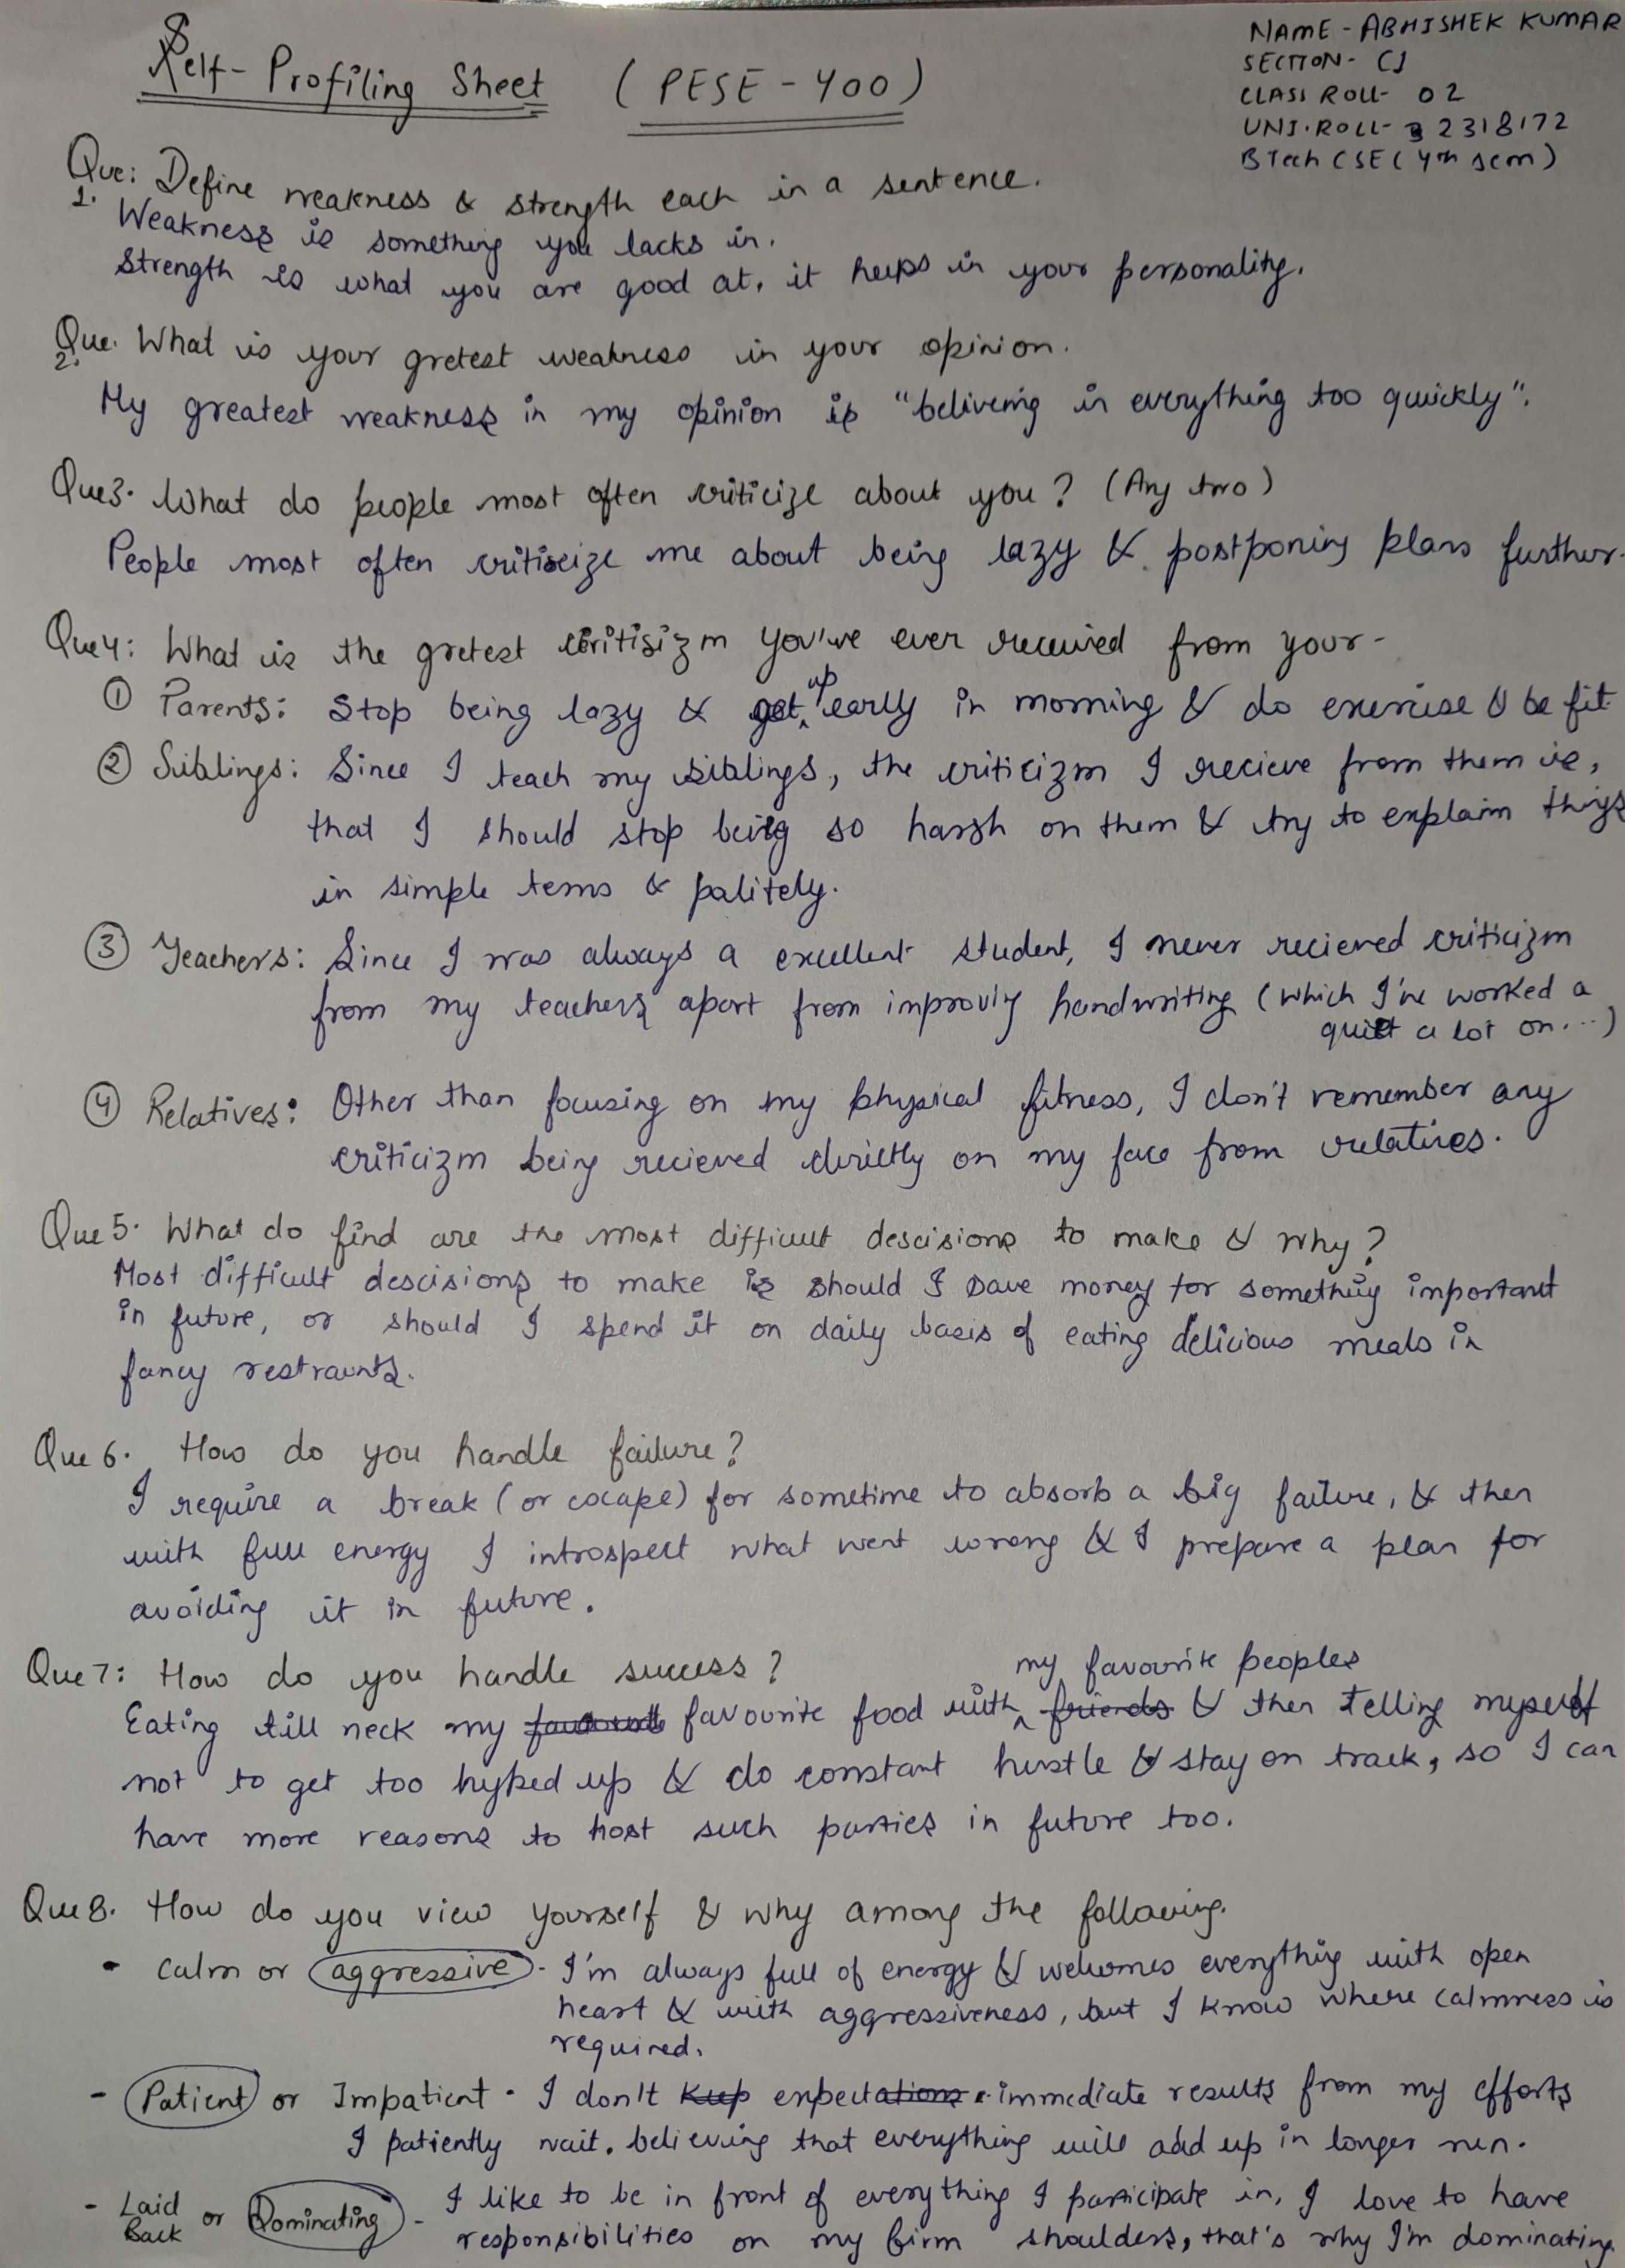 Self-Profiling Sheet (PESE-400)
NAME - ABHISHEK KUMAR
SECTION - CJ
CLASS ROLL - 02
UNI. ROLL - 2318172
BTech CSE (4th sem)
Que: Define weakness & strength each in a sentence.
1. Weakness is something you lacks in.
Strength is what you are good at, it helps in your personality.
Que. What is your gretest weakness in your opinion.
2.
My greatest weakness in my opinion is "beliveing in everything too quickly".
Que3. What do people most often criticize about you? (Any two)
People most often critiscize me about being lazy & postponing plans further.
Que4: What is the gretest critisizm you've ever received from your-
① Parents: Stop being lazy & get up early in morning & do exercise & be fit
② Siblings: Since I teach my siblings, the criticizm I recieve from them is,
that I should stop being so harsh on them & try to explain things
in simple tems & palitely.
③ Teachers: Since I was always a excellent student, I never recieved criticizm
from my teachers apart from improving handwriting (which I've worked a
quiet a lot on...)
④ Relatives: Other than focusing on my physical fitness, I don't remember any
criticizm being recieved directly on my face from relatives.
Que 5. What do find are the most difficult descisions to make & why?
Most difficult descisions to make is should I save money for something important
in future, or should I spend it on daily basis of eating delicious meals in
fancy restraunts.
Que 6. How do you handle failure?
I require a break (or escape) for sometime to absorb a big failure, & then
with full energy I introspect what went wrong & I prepare a plan for
avoiding it in future.
Que 7: How do you handle success?
my favourite peoples
Eating till neck my favourite food with friends & then telling myself
not to get too hyped up & do constant hustle & stay on track, so I can
have more reasons to host such parties in future too.
Que 8. How do you view yourself & why among the following.
- Calm or aggressive - I'm always full of energy & welcomes everything with open
heart & with aggressiveness, but I know where calmness is
required.
- Patient or Impatient - I don't keep expectations immediate results from my efforts
I patiently wait, believing that everything will add up in longer run.
- Laid Back or Dominating - I like to be in front of everything I participate in, I love to have
responsibilities on my firm shoulders, that's why I'm dominating